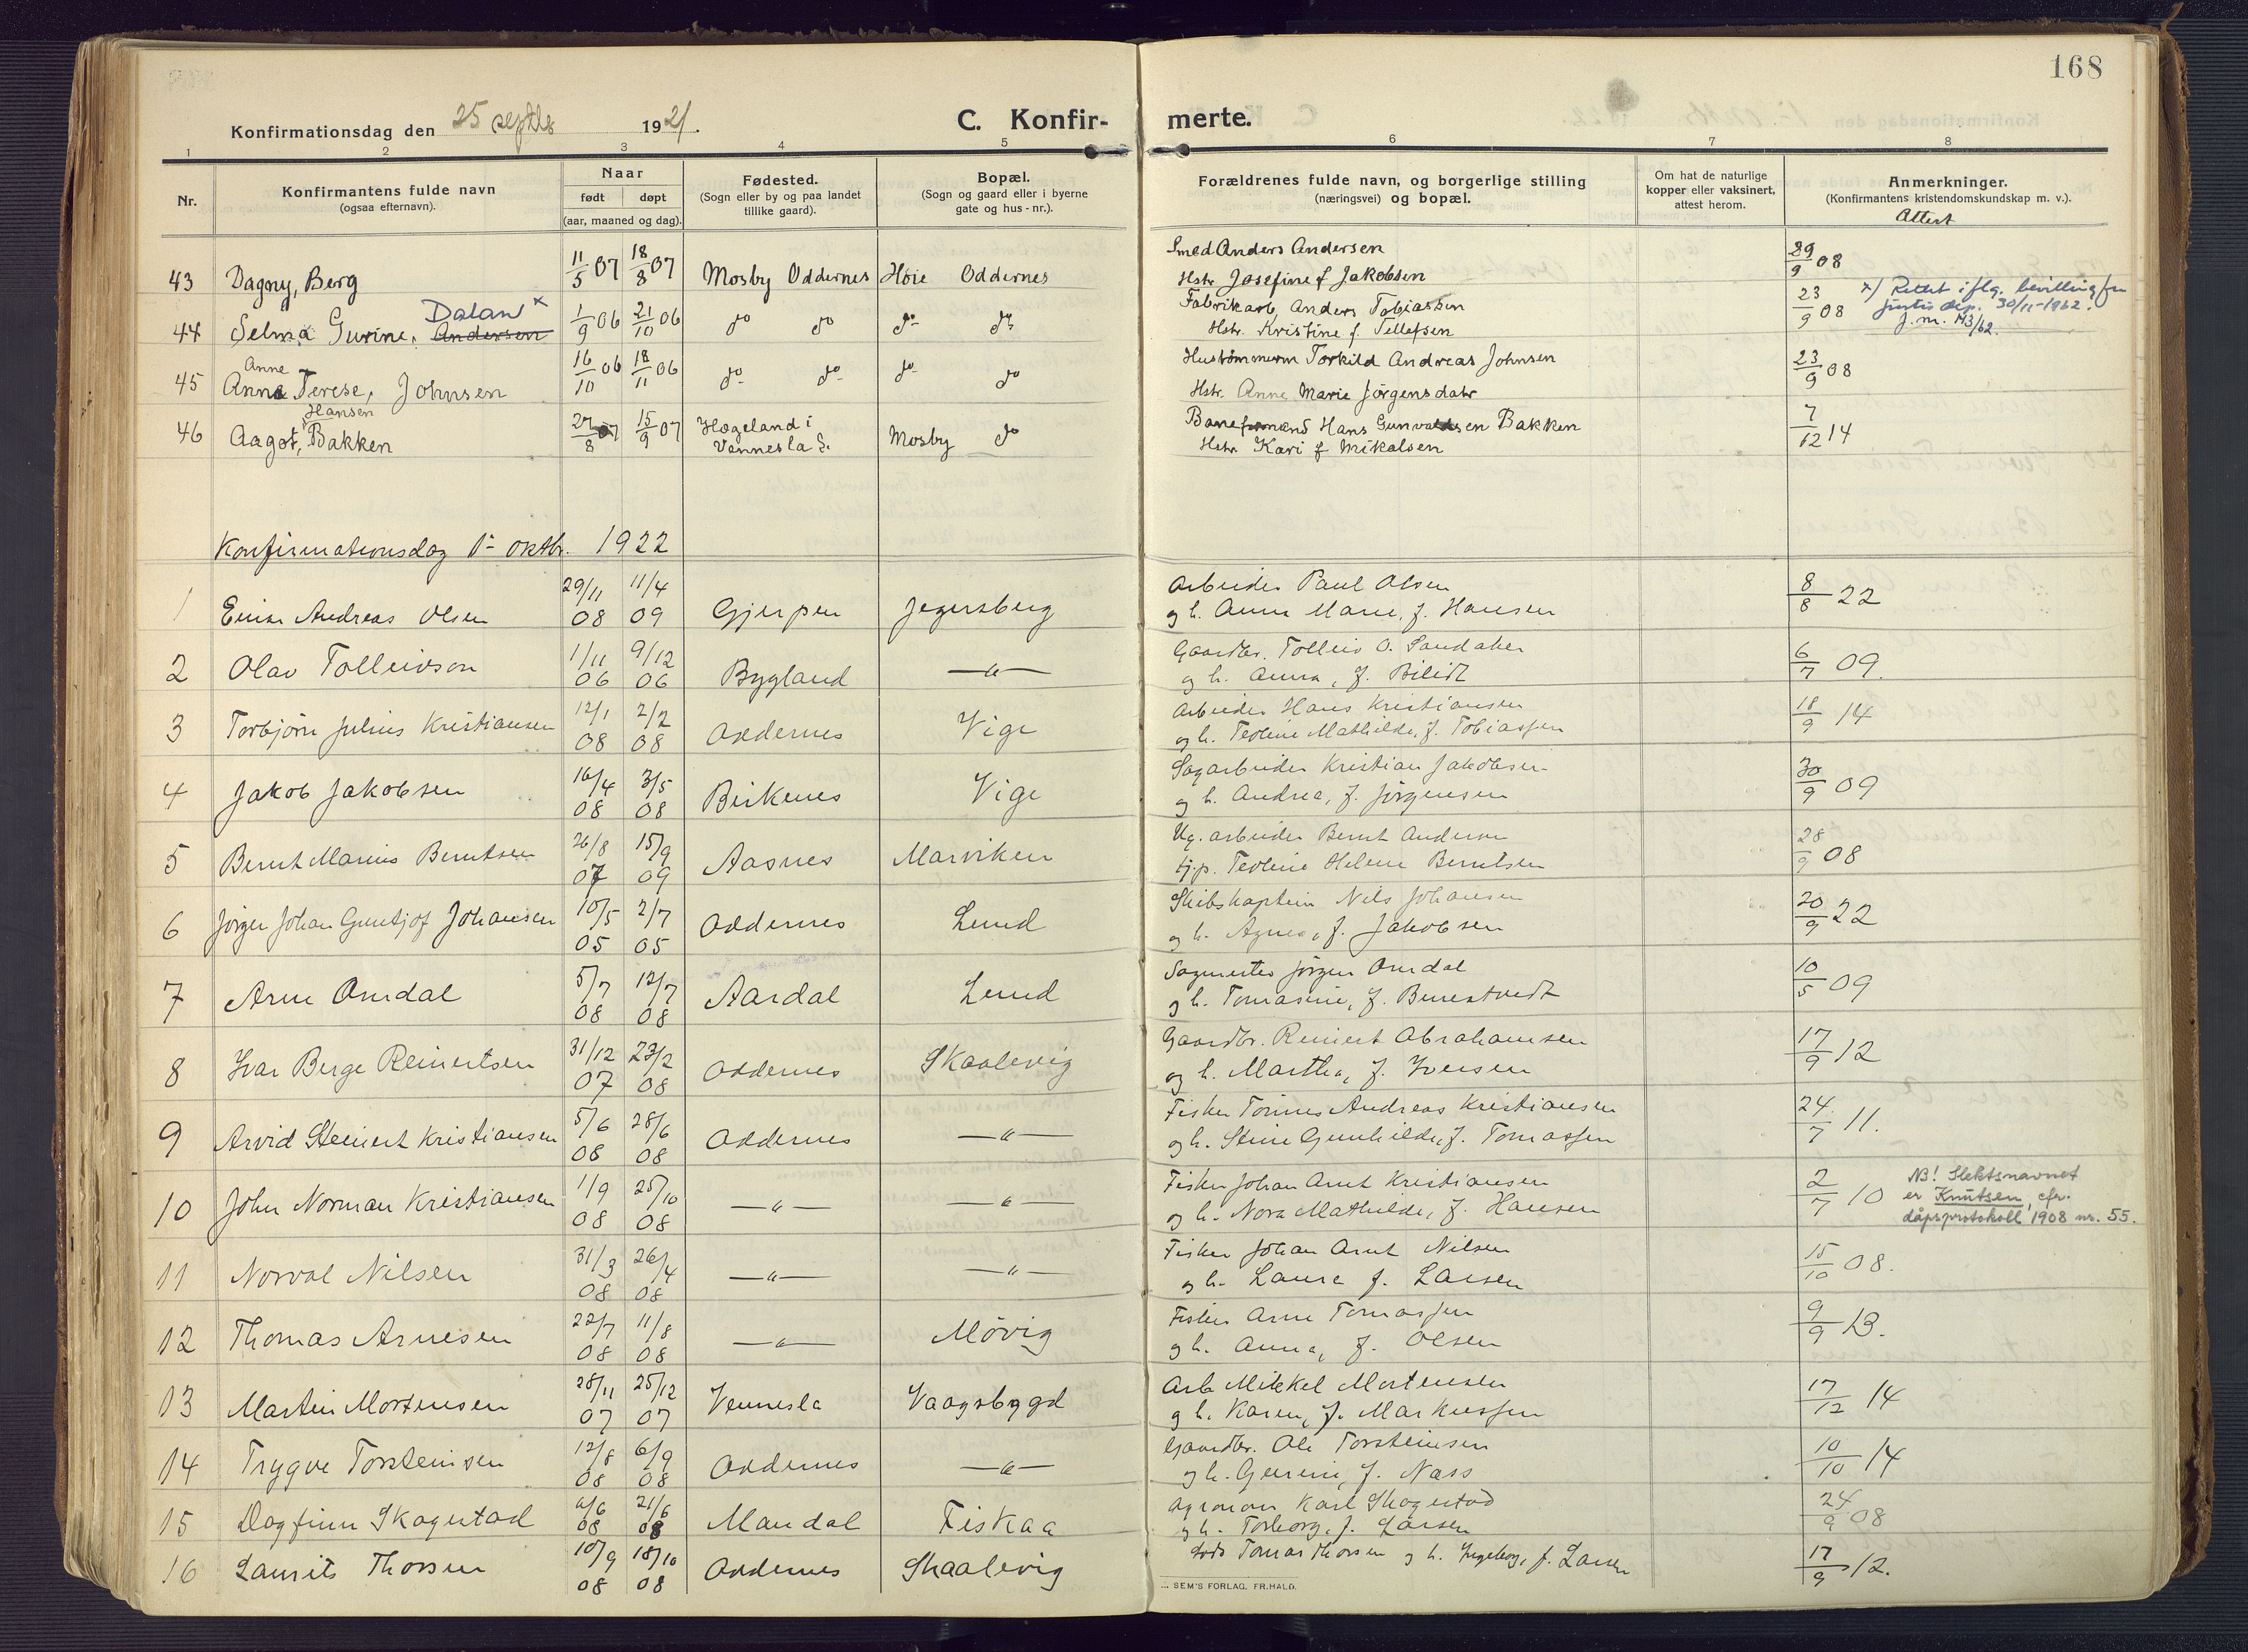 168
Konfirmationsdag den 25 septbr 1921.
C. Konfirmerte.
1 2 3 4 5 6 7 8
Nr.
Konfirmantens fulde navn
(ogsaa efternavn).
Naar
født døpt
(aar, maaned og dag).
Fødested.
(Sogn eller by og paa landet
tillike gaard).
Bopæl.
(Sogn og gaard eller i byerne
gate og hus-nr.).
Forældrenes fulde navn, og borgerlige stilling
(næringsvei) og bopæl.
Om hat de naturlige
kopper eller vaksinert,
attest herom.
Anmerkninger.
(Konfirmantens kristendomskundskap m. v.).
Attest
Smed Anders Andersen
43 Dagny, Berg 11/5 07 18/8 07 Mosby Oddernes Høie Oddernes Hstr Josefine f Jakobsen 29/9 08
Dalan x
Fabrikarb, Anders Tobiassen
44 Selma Gurine, Andersen 1/9 06 21/10 06 do do do do Hstr. Kristine f. Tellefsen 23/9 08
x) Rettet iflg. bevilling fra
justis dep. 30/11-1962.
j.nr. 143/62.
Anne
Hustømmerm Torkild Andreas Johnsen
45 Anna Terese, Johnsen 16/10 06 18/11 06 do do do do Hstr. Anne Marie Jørgensdatr 23/9 08
Hansen
Baneformand Hans Gunvaldsen Bakken
46 Aagot, Bakken 27/8 07 15/9 07 Hægeland i Vennesla S. Mosby do Hstr Kari f Mikalsen 7/12 14
Konfirmationsdag 1ste oktbr. 1922
Arbeider Paul Olsen
1 Einar Andreas Olsen 29/11 08 11/4 09 Gjerpen Jegersberg og h. Anna Marie, f. Hansen 8/8 22
Gaardbr. Tolleiv O. Sandaker
2 Olav Tolleivson 1/11 06 9/12 06 Bygland —〃— og h. Anna, f. Bilidt 6/7 09.
Arbeider Hans Kristiansen
3 Torbjørn Julius Kristiansen 12/1 08 2/2 08 Oddernes Vige og h. Teoline Mathilde, f. Tobiassen 18/9 14
Sagarbeider Kristian Jakobsen
4 Jakob Jakobsen 16/4 08 3/5 08 Birkenes Vige og h. Andrea, f. Jørgensen 30/9 09
Ug. arbeider Bernt Andersen
5 Bernt Marius Berntsen 26/8 07 15/9 09 Aasnes Marviken tj.p. Teoline Helene Berntsen 28/9 08
Skibskaptein Nils Johansen
6 Jørgen Johan Guntjof Johansen 10/5 05 2/7 05 Oddernes Lund og h. Agnes, f. Jakobsen 20/9 22
Sagmester Jørgen Omdal
7 Arne Omdal 5/7 08 12/7 08 Aardal Lund og h. Tomasine, f. Benestvedt 10/5 09
Gaardbr. Reinert Abrahamsen
8 Ivar Berge Reinertsen 31/12 07 23/2 08 Oddernes Skaalevig og h. Martha, f. Iversen 17/9 12
Fisker Tønnes Andreas Kristiansen
9 Arvid Steinert Kristiansen 5/6 08 28/6 08 Oddernes —〃— og h. Stine Gunhilde, f. Tomassen 24/7 11.
Fisker Johan Arnt Kristiansen
10 John Norman Kristiansen 1/9 08 25/10 08 —〃— —〃— og h. Nora Mathilde, f. Hansen 2/7 10
NB! Slektsnavnet
er Knutsen, cfr.
dåpsprotokoll 1908 nr. 55.
Fisker Johan Arnt Nilsen
11 Norval Nilsen 31/3 08 26/4 08 —〃— —〃— og h. Laura f. Larsen 15/10 08.
Fisker Arne Tomassen
12 Thomas Arnesen 22/7 08 11/8 08 —〃— Møvig og h. Anna, f. Olsen 9/9 13.
Arb. Mikkel Mortensen
13 Martin Mortensen 28/11 07 25/12 07 Vennesla Vaagsbygd og h. Karen, f. Markussen 17/12 14
Gaardbr. Ole Torsteinsen
14 Trygve Torsteinsen 12/8 08 6/9 08 Oddernes —〃— og h. Gurine, f. Næss 10/10 14
Agronom Karl Skogestad
15 Dagfinn Skogestad 2/6 08 21/6 08 Mandal Fiskaa og h. Torborg, f. Larsen 24/9 08
16 Laurits Thorsen 10/9 08 18/10 08 Oddernes Skaalevig Lods Tomas Thorsen og h. Ingeborg, f. Larsen 17/9 12.
SEM'S FORLAG, FR.HALD.